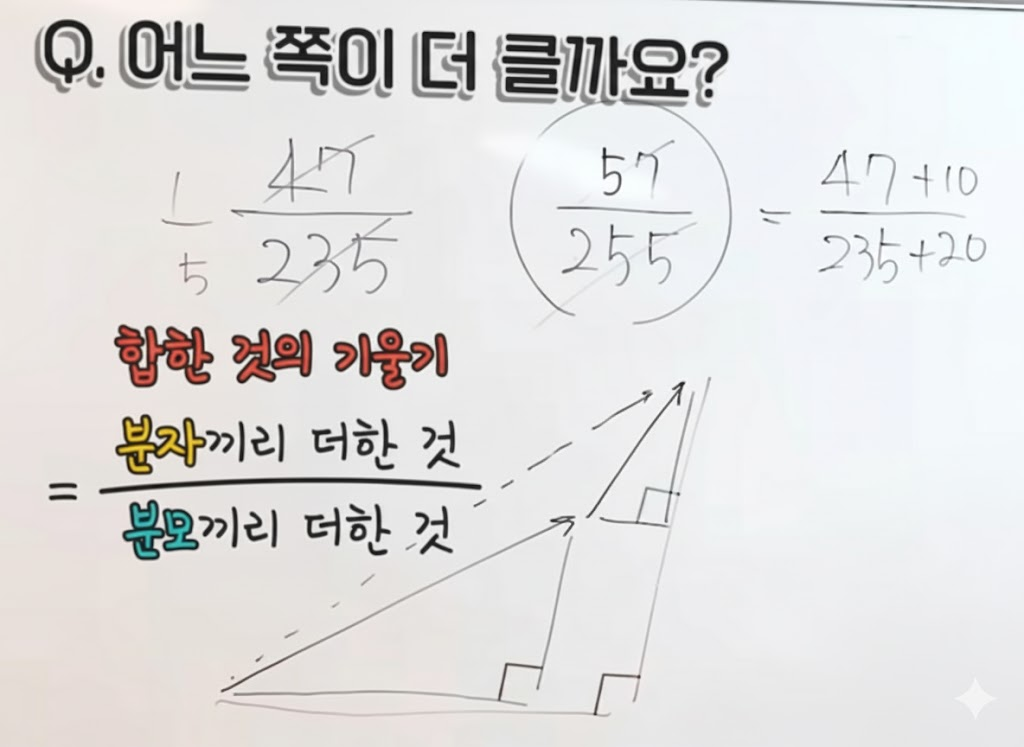 Q. 어느 쪽이 더 클까요?
1/5 47/235 57/255 = 47+10/235+20
합한 것의 기울기
= 분자끼리 더한 것
분모끼리 더한 것